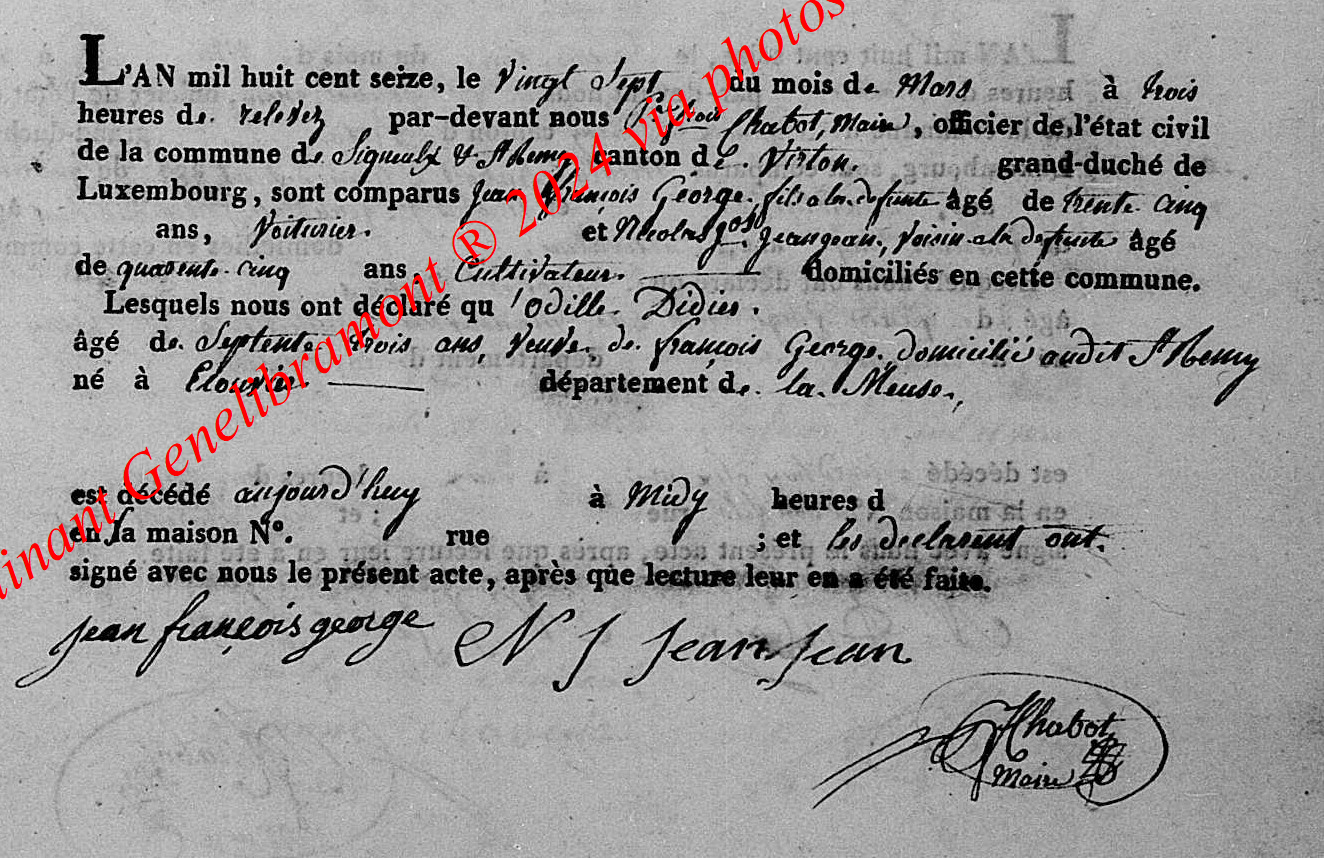 L'AN mil huit cent seize, le Vingt Sept du mois de Mars à trois
heures de relevez par-devant nous Chabot, Maire, officier de l'état civil
de la commune de Signeulx & St Remy canton de Virton. grand-duché de
Luxembourg, sont comparus Jean françois George fils a la defunte âgé de trente cinq
ans, Voiturier. et Nicolas Jeanjean, Voisin a la defunte âgé
de quarente cinq ans, Cultivateur. domiciliés en cette commune.
Lesquels nous ont déclaré qu'Odille Didier.
âgé de Septente trois ans, veuve de françois George domicilié audit St Remy
né à département de la Meuse,
est décédé aujourd'huy à Midy heures d
en sa maison N°. rue ; et les declarent ont
signé avec nous le présent acte, après que lecture leur en a été faite.
jean françois george N J Jean Jean
Chabot
Maire
Genelibramont ® 2024 via photos